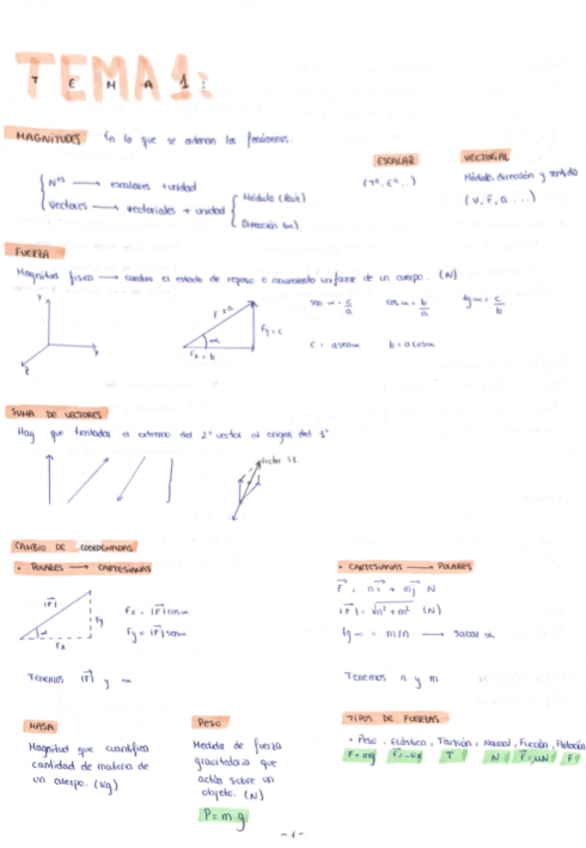 TEMA 1:
MAGNITUDES En lo que se ordenan los fenómenos.
ESCALAR VECTORIAL
(Tª, Cª...) Módulo, dirección y sentido
(V, F, a ...)
Nos → escalares + unidad
Vectores → vectoriales + unidad { Módulo
Dirección (α)
FUERZA
Magnitud física → cambia el estado de reposo o movimiento uniforme de un cuerpo. (N)
y x z
F = a α Fx = b Fy = c
sen α = c/a cos α = b/a tg α = c/b
c = a sen α b = a cos α
SUMA DE VECTORES
Hay que trasladar el extremo del 2º vector al origen del 1º
Vector
CAMBIO DE COORDENADAS
• POLARES → CARTESIANAS • CARTESIANAS → POLARES
|F| α Fx Fy
Fx = |F| cos α
Fy = |F| sen α
F = n i + m j N
|F| = √n² + m² (N)
tg α = m/n → sacas α
Tenemos |F| y α Tenemos n y m
MASA
Magnitud que cuantifica
cantidad de materia de
un cuerpo. (Kg)
PESO
Medida de fuerza
gravitatoria que
actúa sobre un
objeto. (N)
P = m.g
TIPOS DE FUERZAS
• Peso, Elástica, Tensión, Normal, Fricción, Flotación
F = mg F = -Kx T N F = μN F
- 1 -